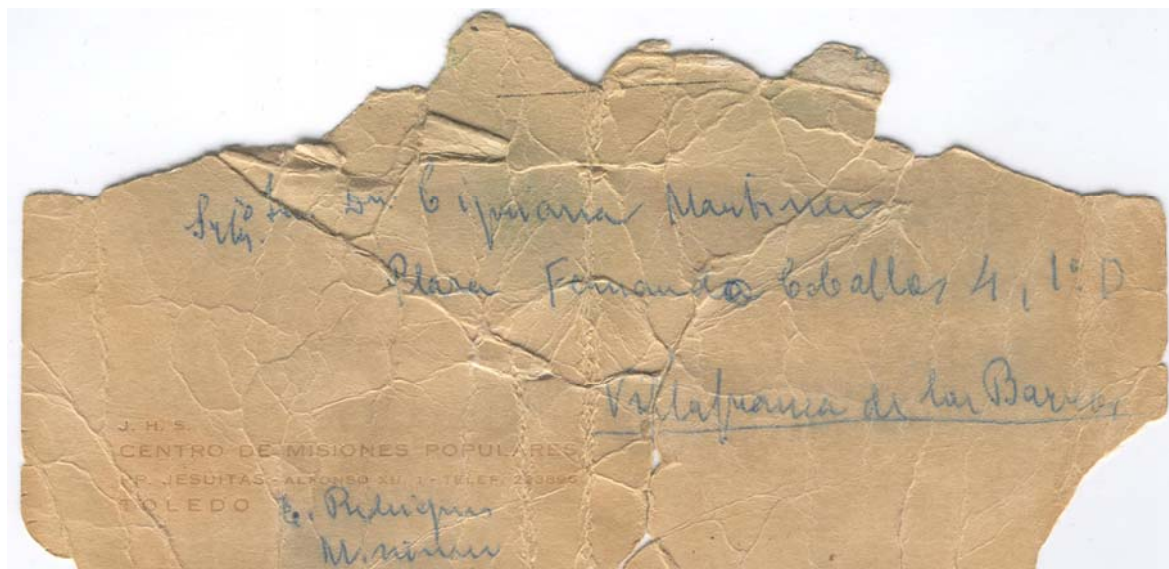 Srta. Cipriana Martinez
Plaza Fernando Ceballos 4, 1º D
Villafranca de los Barros
J. H. S.
CENTRO DE MISIONES POPULARES
PP. JESUITAS - ALFONSO XII, 1 - TELEF.
TOLEDO
Rodriguez